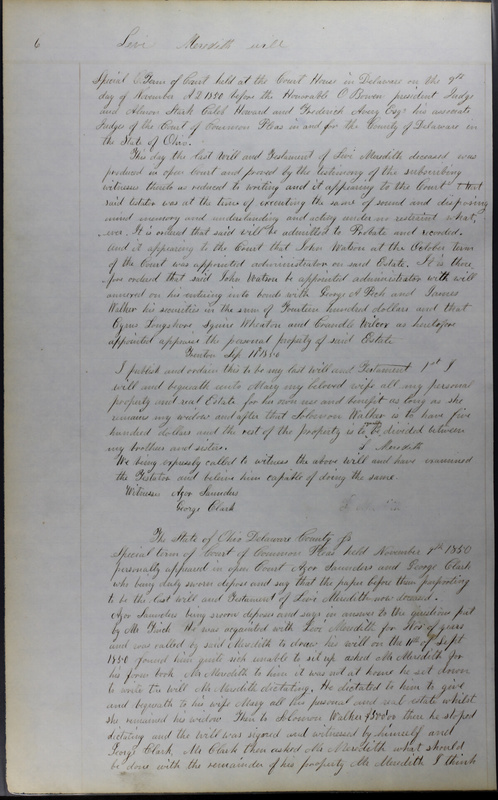 6 Levi Meredith will
Special Term of Court held at the Court House in Delaware on the 9th
day of November A D 1850 before the Honorable O Bowen president Judge
and Almon Stark Caleb Howard and Frederick Avery Esqs his associate
Judges of the Court of Common Pleas in and for the County of Delaware in
the State of Ohio.
This day the last Will and Testament of Levi Meredith deceased was
produced in open Court and proved by the testimony of the subscribing
witnesses thereto as reduced to writing and it appearing to the Court that
said testator was at the time of executing the same of sound and disposing
mind memory and understanding and acting under no restraint what
ever. It is ordered that said will be admitted to Probate and recorded.
And it appearing to the Court that John Watson at the October term
of the Court was appointed administrator on said Estate. It is there
fore ordered that said John Watson be appointed administrator with will
annexed on his entering into bonds with George A Peck and James
Walker his securities in the sum of Fourteen hundred dollars and that
Cyrus Longshore Squire Wheaton and Wilcox as heretofore
appointed appraise the personal property of said Estate
Trenton Sep 1850
I publish and ordain this to be my last will and Testament 1st I
will and bequeath unto Mary my beloved wife all my personal
property and real Estate for his own use and benefit as long as she
remains my widow and after that Walker is to have five
hundred dollars and the rest of the property is to be divided between
my brothers and sisters. L Meredith
We being expressly called to witness the above will and have examined
the Testator and believe him capable of doing the same.
Witness Azor Saunders
George Clark
The State of Ohio Delaware County ss
Special term of Court of Common Pleas held November 9th 1850
personally appeared in open Court Azor Saunders and George Clark
who being duly sworn depose and say that the paper before them purporting
to be the last will and Testament of Levi Meredith deceased.
Azor Saunders being sworn deposes and says in answer to the questions put
by Mr Finch He was acquainted with Levi Meredith for years
and was called by said Meredith to draw his will on the 11th of Sept
1850 found him quite sick unable to sit up asked Mr Meredith for
his form book Mr Meredith to him it was not at home he set down
to write the will Mr Meredith dictating. He dictated to him to give
and bequeath to his wife Mary all his personal and real estate whilst
she remained his widow Then to Walker $500 then he stoped
dictating and the will was signed and witnessed by himself and
George Clark, Mr Clark then asked Mr Meredith what should
be done with the remainder of his property Mr Meredith I think